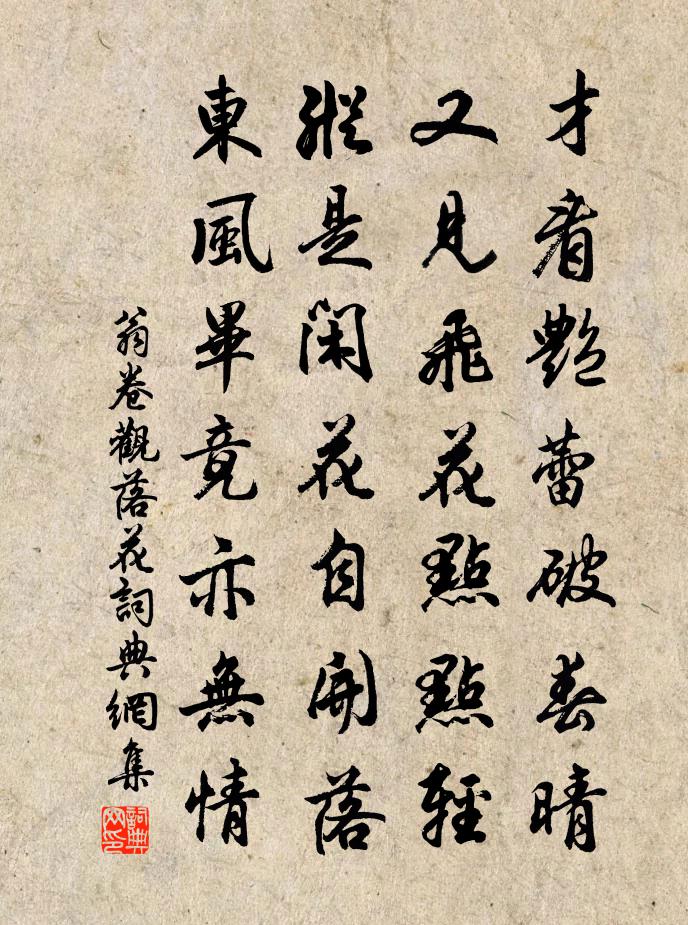 才看艷蕾破春晴
又見飛花點點輕
縱是閑花自開落
東風畢竟亦無情
翁卷觀落花詞典網集
詞典網印